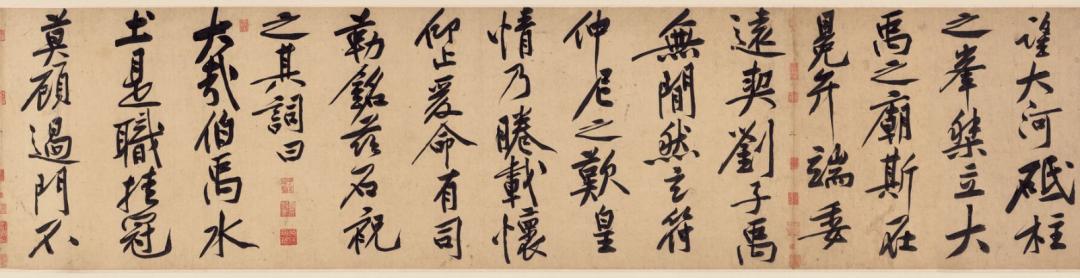 望大河砥柱
之峯桀立大
禹之廟斯在
冕弁端委
遠契劉子禹
無閒然玄符
仲尼之歎皇
情乃睠載懷
仰止爰命有司
勒銘茲石祝
之其詞曰
大哉伯禹水
土是職挂冠
莫顧過門不